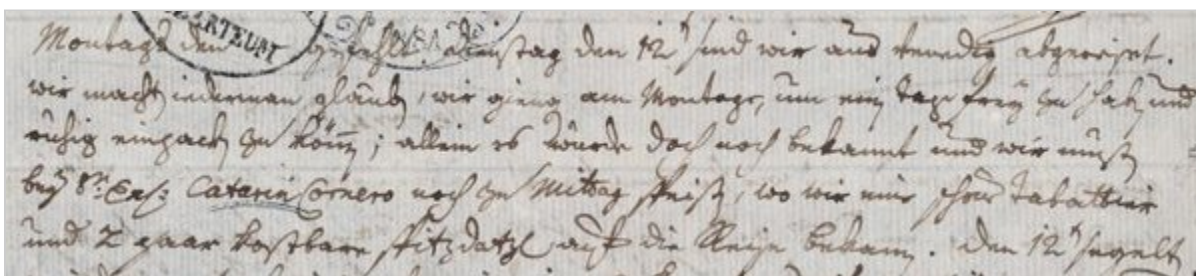 ZARTEUM
Montags den gefehlt! dienstag den 12t sind wir aus venedig abgereiset.
wir machtn iederman glaubn, wir giengn am Montage, um einn tage frey zu habn und
ruhig einpackn zu könn; allein es wurde doch noch bekannt und wir mustn
bey Sr: Exc: Catarin Cornero noch zu Mittag speisn, wo wir eine schöne tabattier
und 2 paar kostbare spitzdatzl auf die Reise bekamn. den 12t segeltn